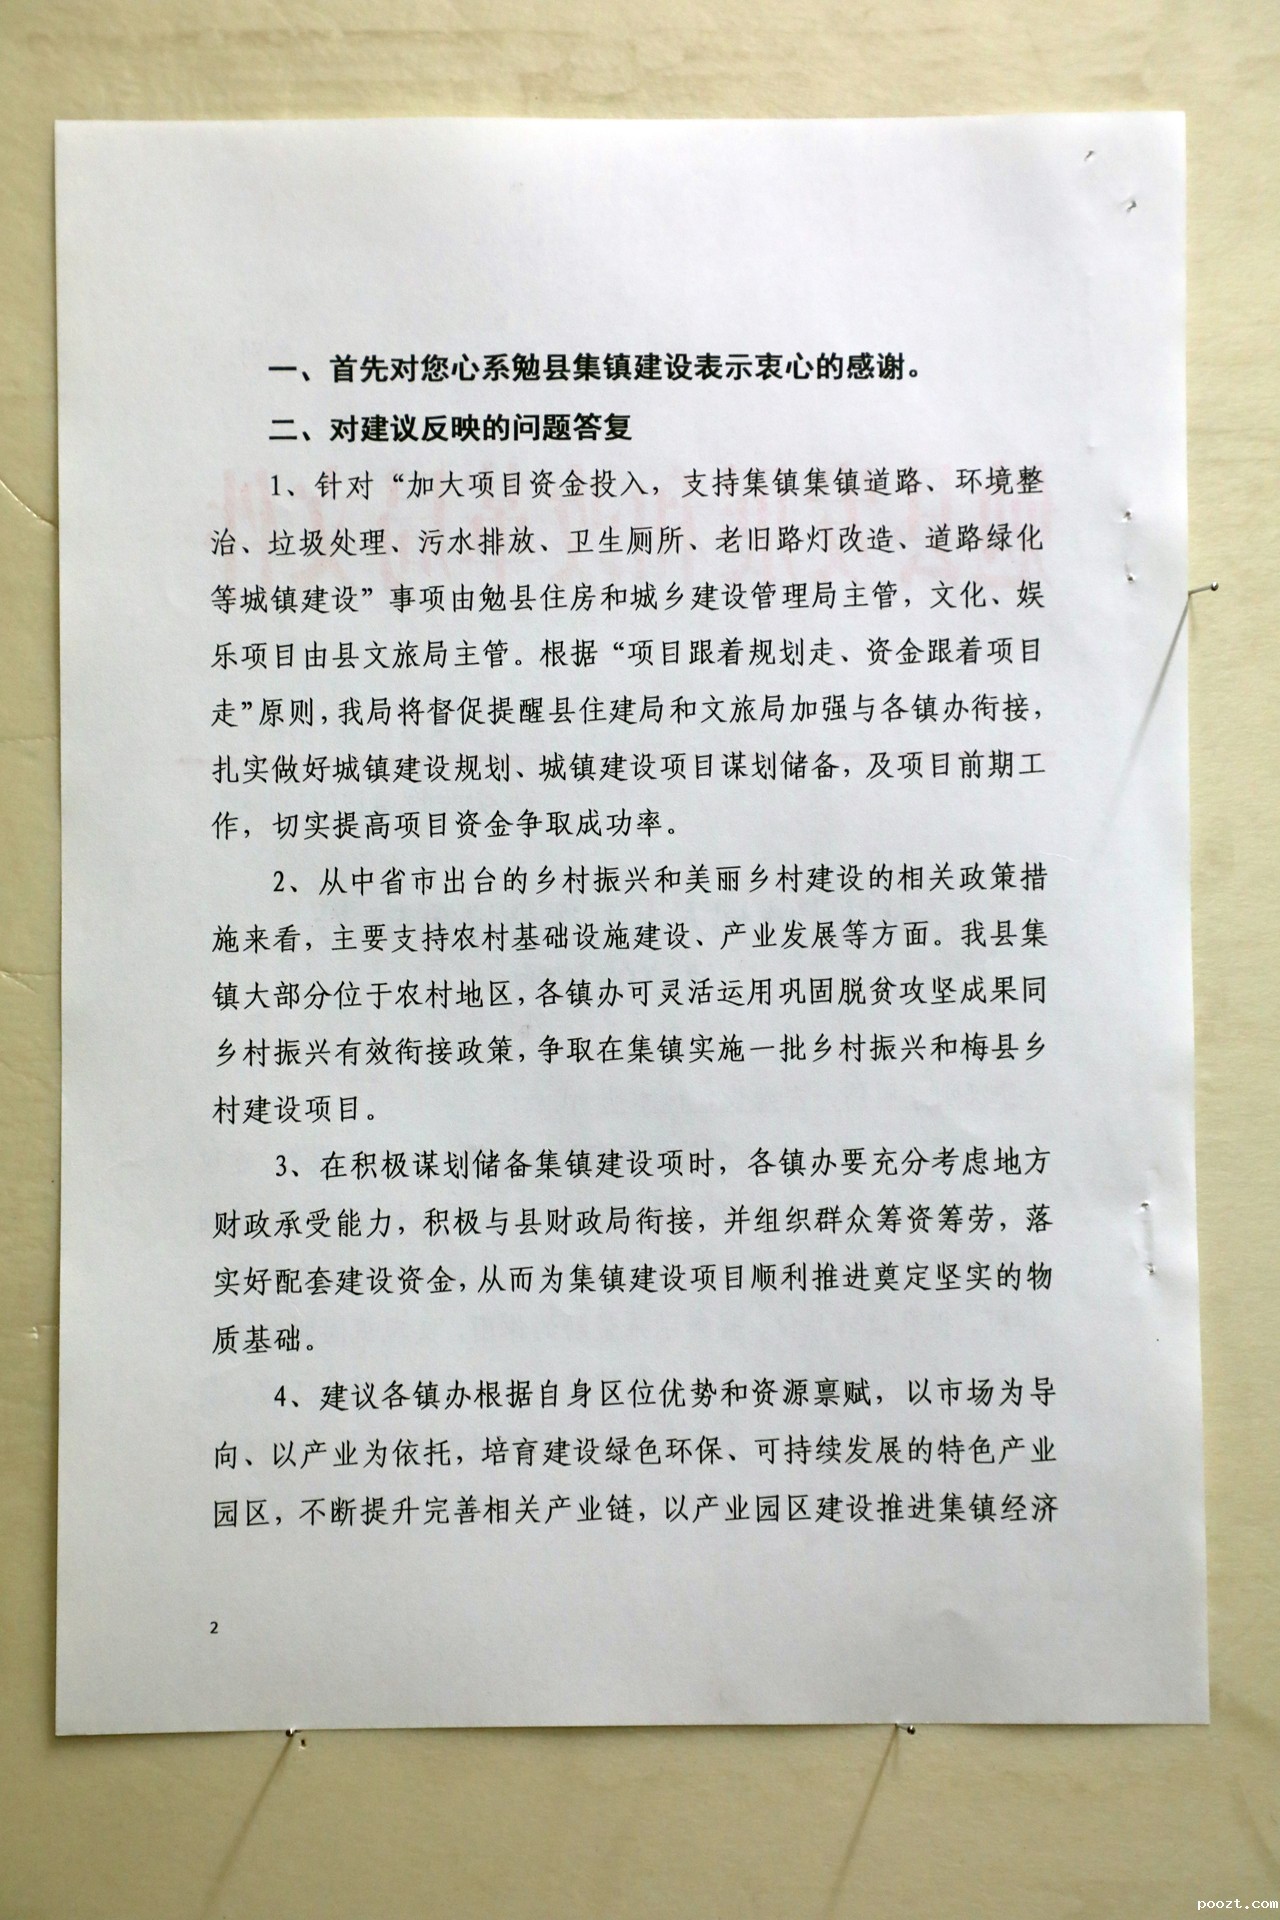 一、首先对您心系勉县集镇建设表示衷心的感谢。
二、对建议反映的问题答复
1、针对“加大项目资金投入，支持集镇集镇道路、环境整
治、垃圾处理、污水排放、卫生厕所、老旧路灯改造、道路绿化
等城镇建设”事项由勉县住房和城乡建设管理局主管，文化、娱
乐项目由县文旅局主管。根据“项目跟着规划走、资金跟着项目
走”原则，我局将督促提醒县住建局和文旅局加强与各镇办衔接，
扎实做好城镇建设规划、城镇建设项目谋划储备，及项目前期工
作，切实提高项目资金争取成功率。
2、从中省市出台的乡村振兴和美丽乡村建设的相关政策措
施来看，主要支持农村基础设施建设、产业发展等方面。我县集
镇大部分位于农村地区，各镇办可灵活运用巩固脱贫攻坚成果同
乡村振兴有效衔接政策，争取在集镇实施一批乡村振兴和梅县乡
村建设项目。
3、在积极谋划储备集镇建设项时，各镇办要充分考虑地方
财政承受能力，积极与县财政局衔接，并组织群众筹资筹劳，落
实好配套建设资金，从而为集镇建设项目顺利推进奠定坚实的物
质基础。
4、建议各镇办根据自身区位优势和资源禀赋，以市场为导
向、以产业为依托，培育建设绿色环保、可持续发展的特色产业
园区，不断提升完善相关产业链，以产业园区建设推进集镇经济
2
poozt.com